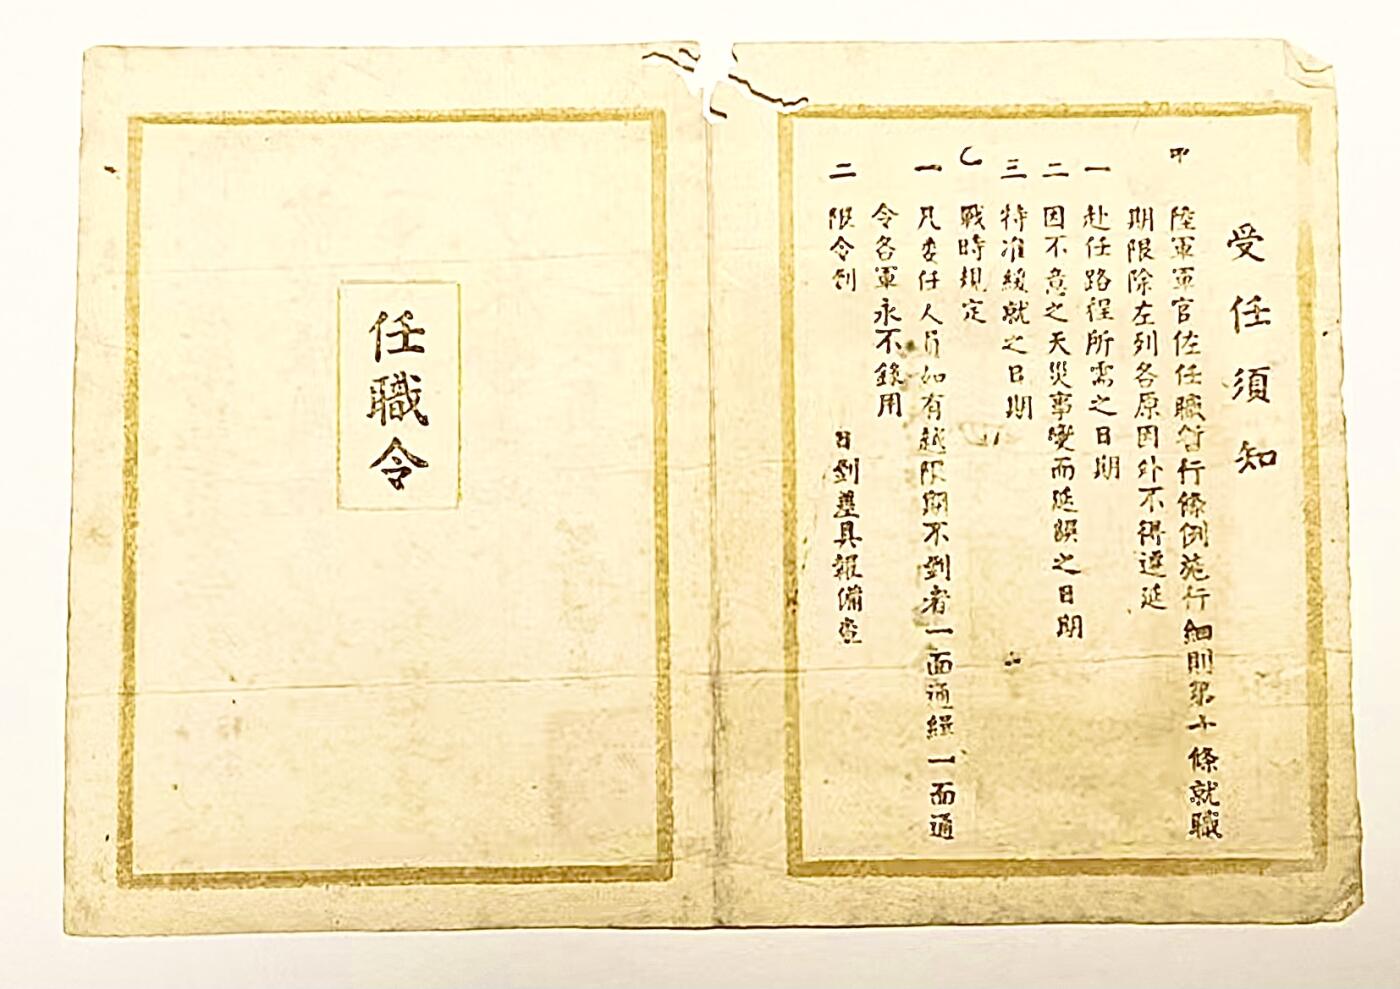 受任須知
甲 陸軍軍官佐任職暫行條例施行細則第十條就職
期限除左列各原因外不得遲延
一 赴任路程所需之日期
二 因不意之天災事變而延誤之日期
三 特准緩就之日期
乙 戰時規定
一 凡委任人員如有越限期不到者一面通緝一面通
令各軍永不錄用
二 限令到 日到差具報備查
任職令